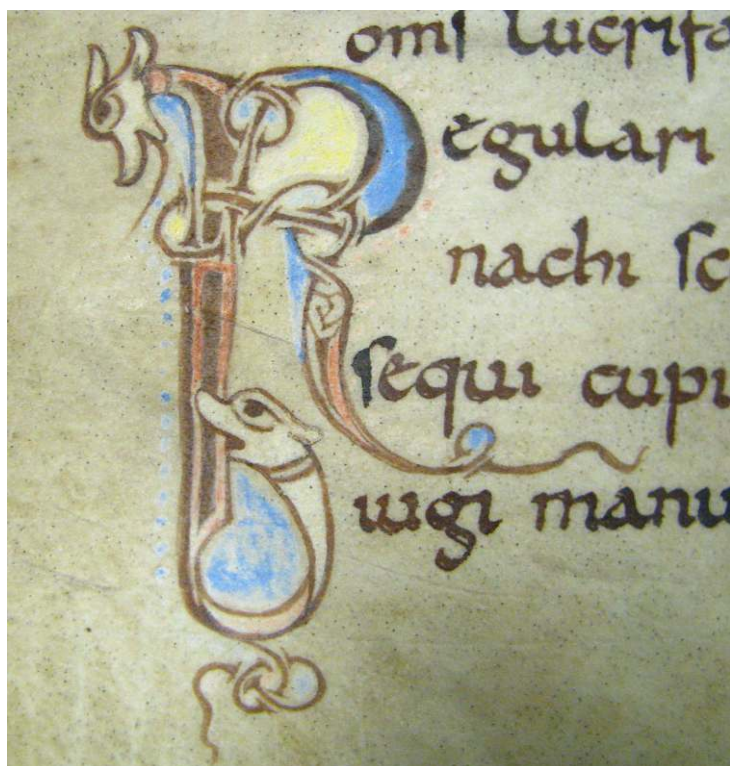 oms lucrifa
Regulari
nachi sc
sequi cupi
iugi manu